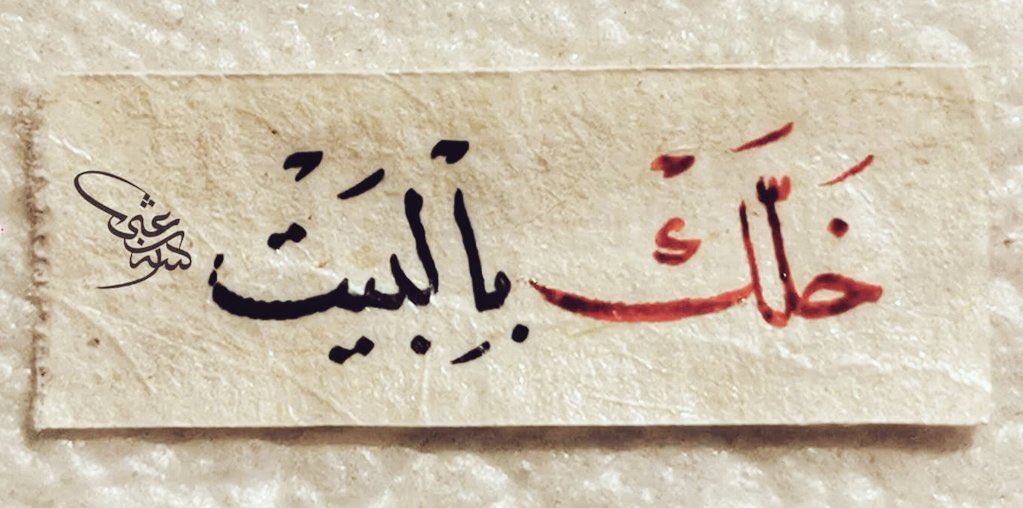 خَلَّكَْ بِالْبَيَتْ